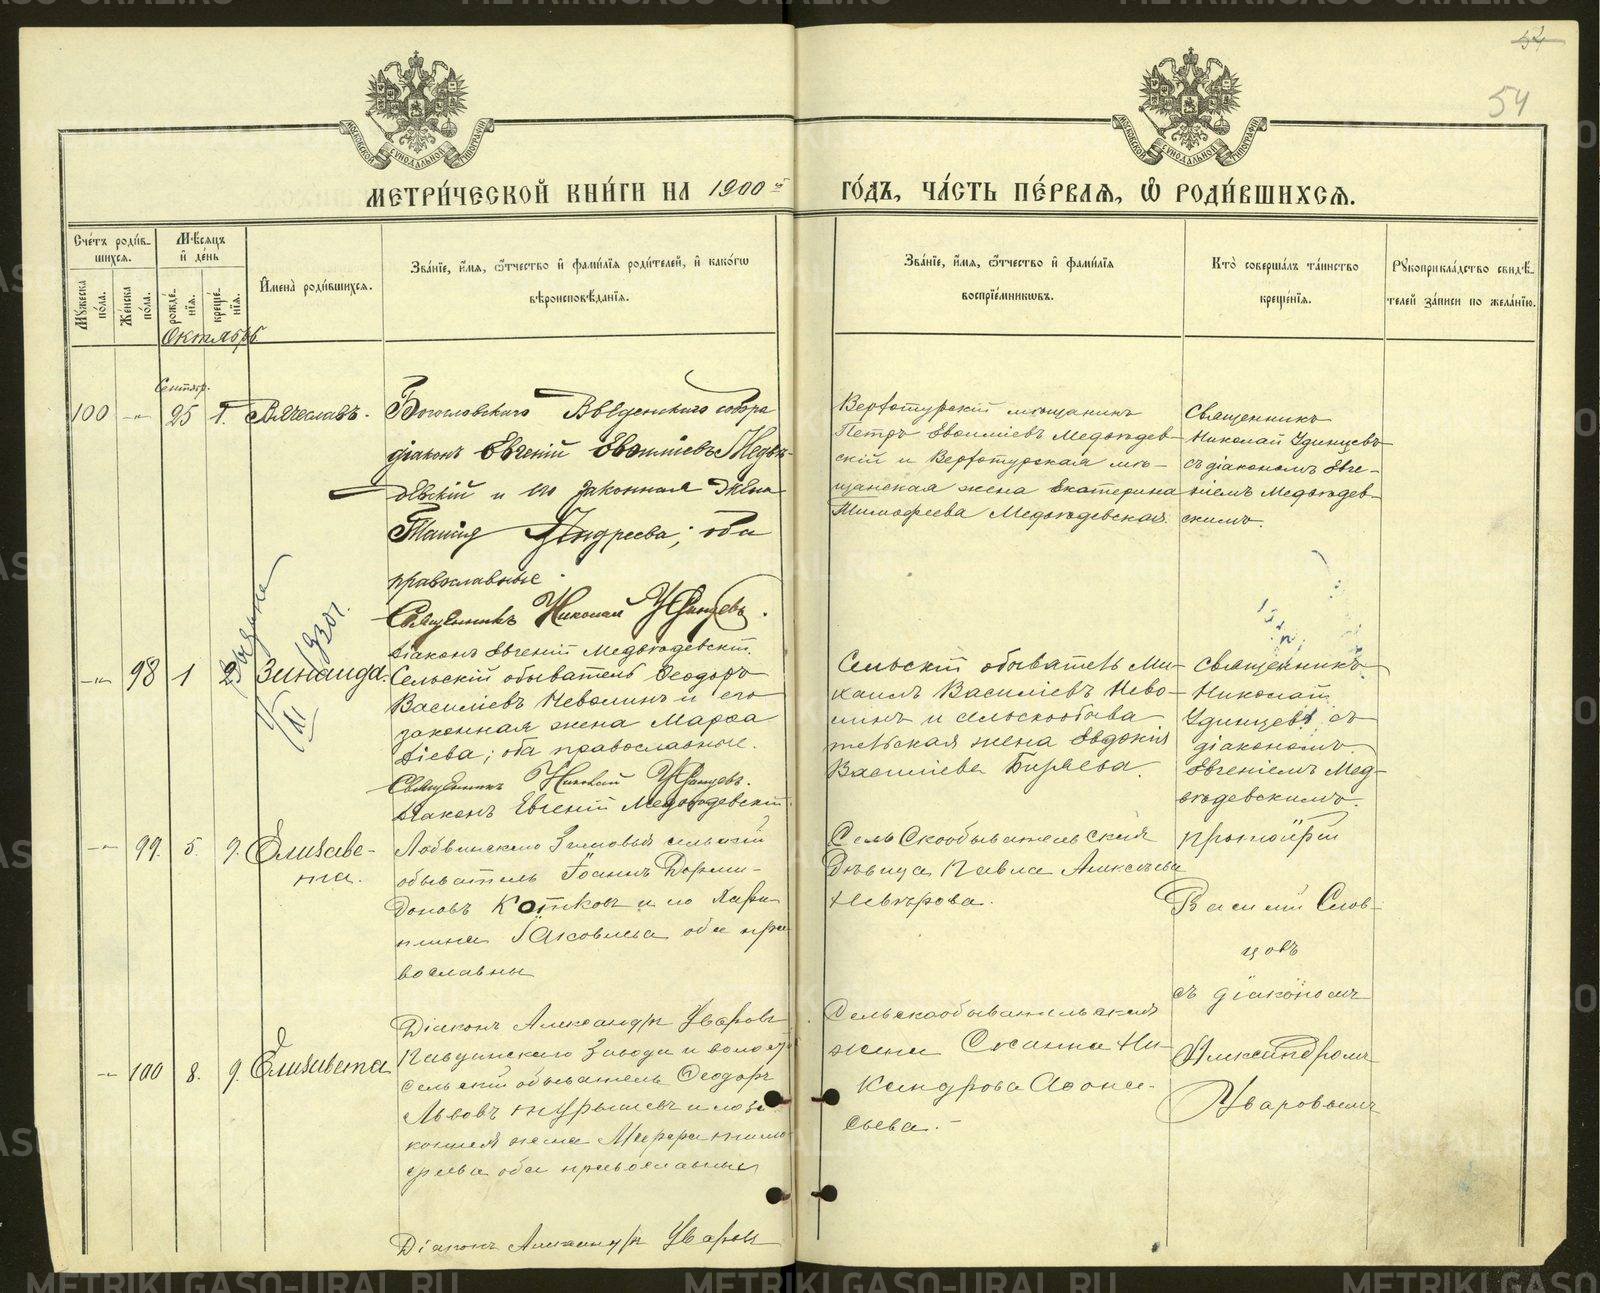 54
54
МОСКОВСКОЙ СУНОДАЛЬНОЙ ТИПОГРАФІИ
МОСКОВСКОЙ СУНОДАЛЬНОЙ ТИПОГРАФІИ
МЕТРИ́ЧЕСКОЙ КНИ́ГИ НА 1900й
ГО́ДЪ, ЧА́СТЬ ПЕ́РВАѦ, Ѡ҆ РОДИ́ВШИХСѦ.
Сче́тъ роди́в-
шихсѧ.
Мѣ́сѧцъ
и҆ де́нь
Мꙋ́жеска по́ла.
Же́нска по́ла.
рожде́-нїѧ.
креще́-нїѧ.
Октябрь
И҆мена̀ роди́вшихсѧ.
Зва́нїе, и҆́мѧ, ѻ҆́тчество и҆ фами́лїѧ роди́телей, и҆ како́гѡ
вѣроисповѣ́данїѧ.
Зва́нїе, и҆́мѧ, ѻ҆́тчество и҆ фами́лїѧ
воспрїе́мникѡвъ.
Кто̀ соверша́лъ та́инство
креще́нїѧ.
Рꙋкоприкла́дство свидѣ́-
телей за́писи по жела́нїю.
Сентябр.
100 -„- 25 1. Вячеславъ.
Богословскаго Введенскаго собора
діаконъ Евгеній Евсиміевъ Медвѣ-
девскій и его законная жена
Таисія Андреева; оба
православные.
Священникъ Николай Удинцевъ.
Діаконъ Евгеній Медвѣдевскій.
Верхотурскій мѣщанинъ
Петръ Медвѣдев-
скій и Верхотурская мѣ-
щанская жена Екатерина
Тимофеева Медвѣдевская.
Священникъ
Николай Удинцевъ
съ діакономъ Евге-
ніемъ Медвѣдев-
скимъ.
-„- 98 1 2 Зинаида.
Сельскій обыватель Ѳеодоръ
Василіевъ Неволинъ и его
законная жена Марѳа
оба православные.
Священникъ Николай Удинцевъ.
Діаконъ Евгеній Медвѣдевскій
Сельскій обыватель Ми-
хаилъ Василіевъ Нево-
линъ и сельскообыва
тельская жена Евдокія
Василіева Биряева.
Священникъ
Николай
Удинцевъ съ
діакономъ
Евгеніемъ Мед-
вѣдевскимъ.
-„- 99. 5. 9. Елизаве-
та.
Лобвинскаго Зимовья сельскій
обыватель Іоаннъ Дорми-
доновъ Котковъ и Хари-
тина Яковлева оба пра
вославны
Діаконъ Александръ Уваровъ
Сельскообывательская
Дѣвица Павла Алексѣева
Невѣрова.
Протоіерей
Василій Слов-
цовъ
съ діакономъ
Александромъ
Уваровымъ
-„- 100 8. 9. Елизавета
Павдинскаго Завода и волости
сельскій обыватель Ѳеодоръ
Львовъ и за-
конная жена
оба православные
Діаконъ Александръ Уваровъ
Сельскообывательская
жена Сосанна Ни-
кандрова Аѳана-
сьева.-
METRIKI.GASO-URAL.RU